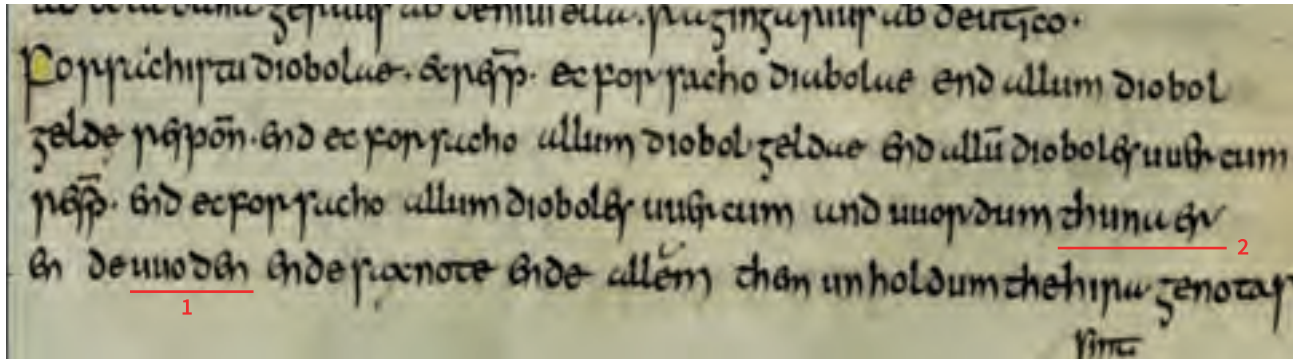 Forsachistu diobolae. &resp̄. ec forsacho diabolae end allum diobol
gelde respon̄. end ec forsacho allum diobol geldae end allū dioboles uuercum
resp̄. end ecforsacho allum dioboles uuercum and uuordum thuna er 2
en de uuoden ende saxnote ende allem them unholdum thehira genotas
1
sint